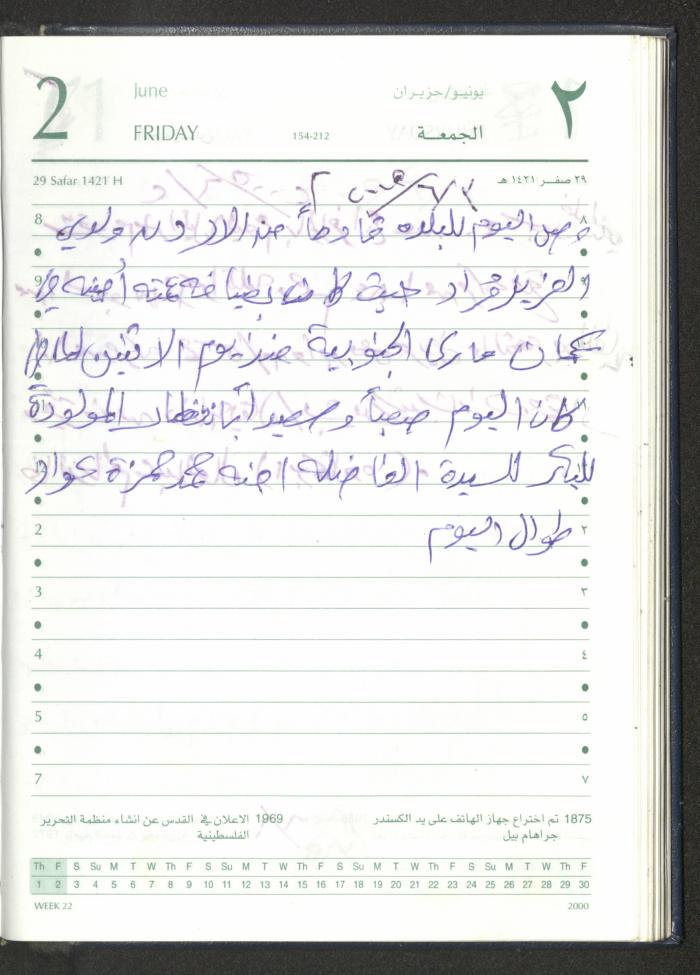 2 June يونيو/حزيران ٢
FRIDAY 154-212 الجمعة
29 Safar 1421 H ٢٩ صفر ١٤٢١ هـ
8 وصل اليوم للبلاد قادماً من الاردن ولدي ٨
9 العزيز مراد حيث كان بضيافة عمته أمنه في
عمان ماركا الجنوبية منذ يوم الاثنين
كان اليوم صعباً وسعيداً بانتظار المولودة
البكر للسيدة الفاضلة امنه محمد حمزة عواد
2 طوال اليوم ٢
3 ٣
4 ٤
5 ٥
7 ٧
1875 تم اختراع جهاز الهاتف على يد الكسندر جراهام بيل
1969 الاعلان في القدس عن انشاء منظمة التحرير الفلسطينية
Th F S Su M T W Th F S Su M T W Th F S Su M T W Th F S Su M T W Th F
1 2 3 4 5 6 7 8 9 10 11 12 13 14 15 16 17 18 19 20 21 22 23 24 25 26 27 28 29 30
WEEK 22 2000